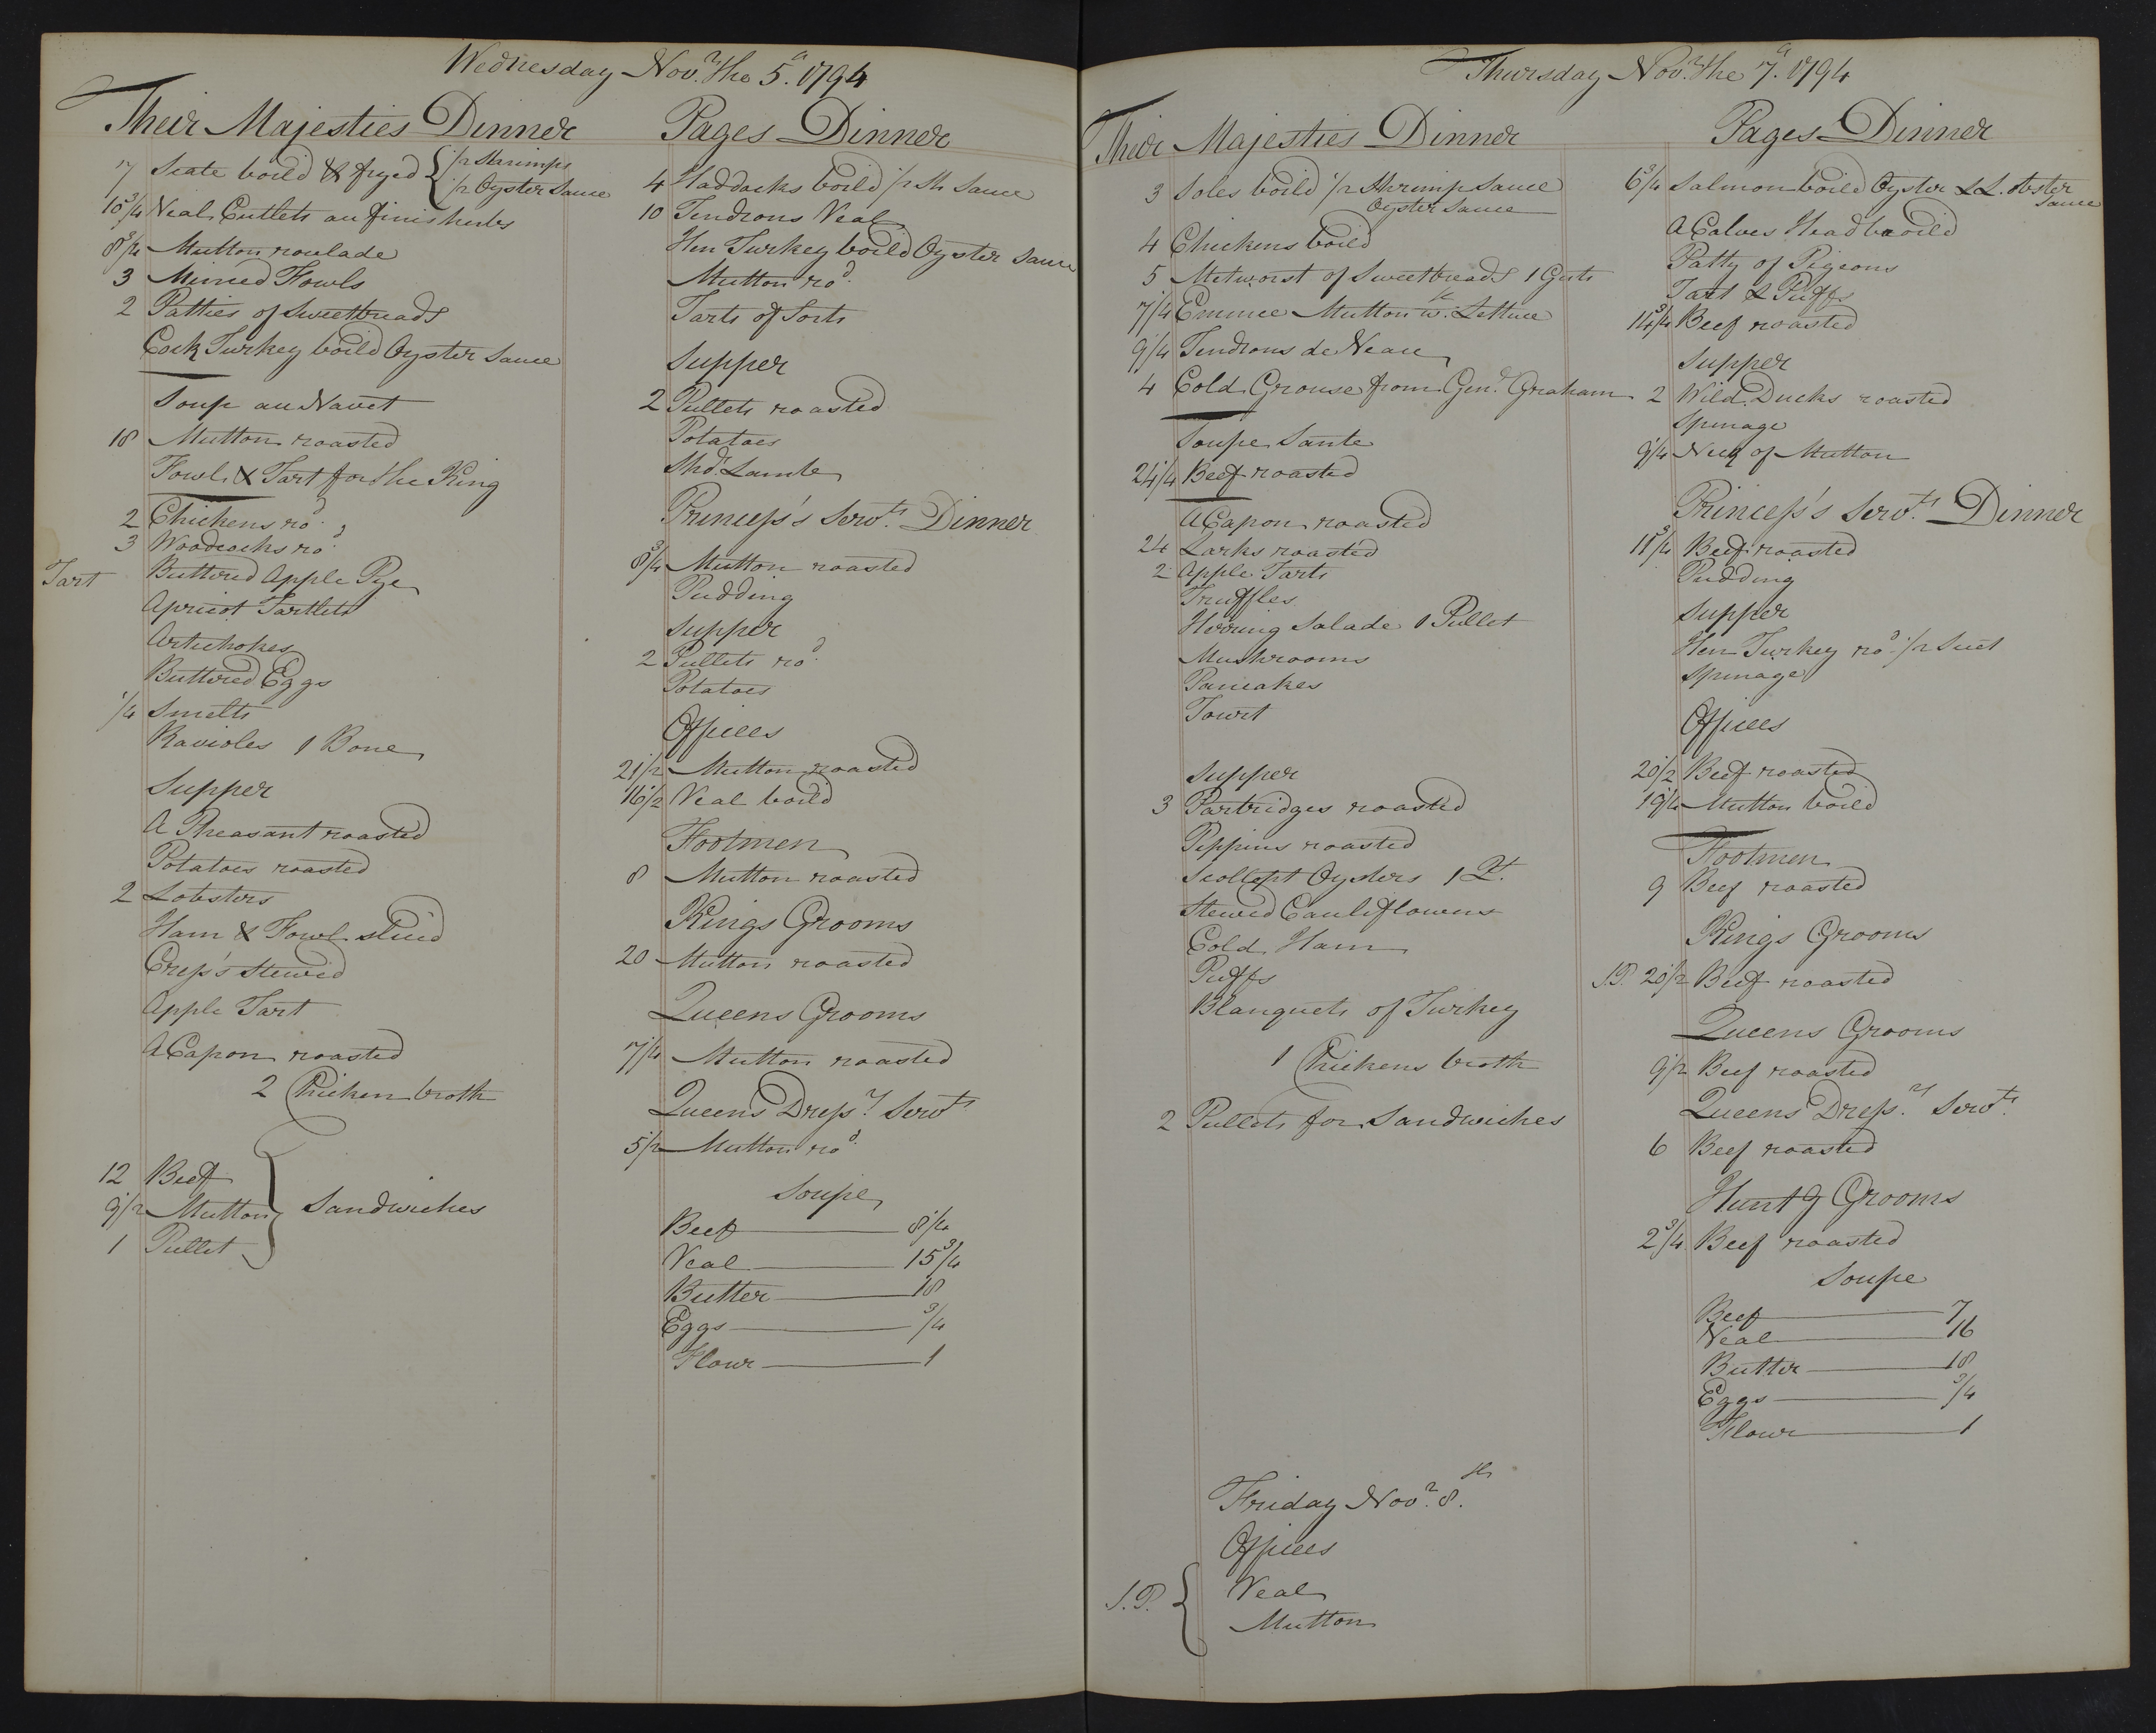 Wednesday Nov.r the 5.th 1794
Their Majesties Dinner
7 Scate boild & fryed { 1/2 Shrimps
1/2 Oyster Sauce
10 3/4 Veal Cutlets au finis herbs
8 3/4 Mutton roulade
3 Minced Fowls
2 Patties of Sweetbreads
Cock Turkey boild Oyster Sauce
Soup au Navet
18 Mutton roasted
Fowl & Tart for the King
2 Chickens ro.d
3 Woodcocks ro.d
Tart Buttered Apple Pye
Apricot Tartlets
Artichokes
Buttered Eggs
1/4 Smelts
Ravioles 1 Bone
Supper
A Pheasant roasted
Potatoes roasted
2 Lobsters
Ham & Fowl slic'd
Cress's Stewed
Apple Tart
A Capon roasted
2 Chicken broth
12 Beef
9 1/2 Mutton } Sandwiches
1 Pullet
Pages Dinner
4 Haddocks boild 1/2 Sh Sauce
10 Tendrons Veal
Hen Turkey boild Oyster Sauce
Mutton ro.d
Tarts of Sorts
Supper
2 Pullets roasted
Potatoes
Sho.d Lamb
Princess's Serv.ts Dinner
8 3/4 Mutton roasted
Pudding
Supper
2 Pullets ro.d
Potatoes
Offices
21 1/2 Mutton roasted
16 1/2 Veal boild
Footmen
8 Mutton roasted
Kings Grooms
20 Mutton roasted
Queens Grooms
7 1/4 Mutton roasted
Queens Dress.rs Serv.ts
5 1/2 Mutton ro.d
Soupe
Beef 8 1/4
Veal 15 3/4
Butter 18
Eggs 3/4
Flour 1
Thursday Nov.r the 7.th 1794
Their Majesties Dinner
3 Soles boild 1/2 Shrimp Sauce
Oyster Sauce
4 Chickens boild
5 Metworst of Sweetbreads 1 Guts
7 1/4 Emince Mutton w.th Lettuce
9 1/4 Tendrons de Veau
4 Cold Grouse from Gen.l Graham
Soupe Sante
24 1/4 Beef roasted
A Capon roasted
24 Larks roasted
2 Apple Tarts
Truffles
Herring Salade 1 Pullet
Mushrooms
Pancakes
Tourt
Supper
3 Partridges roasted
Peppins roasted
Scollopt Oysters 1 Q.t
Stewed Cauliflowers
Cold Ham
Puffs
Blanquets of Turkey
1 Chickens broth
2 Pullets for Sandwiches
Friday Nov.r 8.th
Offices
S.P. { Veal
Mutton
Pages Dinner
6 3/4 Salmon boild Oyster & Lobster
Sauce
A Calves Head boild
Patty of Pigeons
Tart & Puffs
14 3/4 Beef roasted
Supper
2 Wild Ducks roasted
Spinage
9 1/4 Neck of Mutton
Princess's Serv.ts Dinner
11 3/4 Beef roasted
Pudding
Supper
Hen Turkey ro.d 1/2 Suet
Spinage
Offices
20 1/2 Beef roasted
19 1/4 Mutton boild
Footmen
9 Beef roasted
Kings Grooms
S.P. 20 1/2 Beef roasted
Queens Grooms
9 1/2 Beef roasted
Queens Dress.rs Serv.ts
6 Beef roasted
Hunt g Grooms
2 3/4 Beef roasted
Soupe
Beef 7
Veal 16
Butter 18
Eggs 3/4
Flour 1